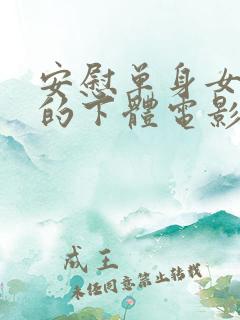 安慰單身女
的下體電影
成王
未经同意禁止转载